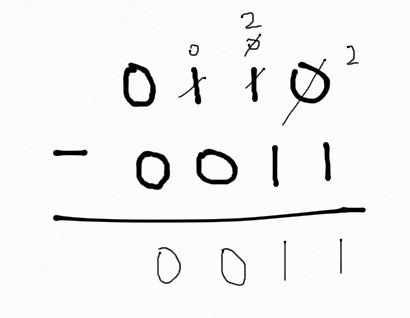 2
0 0 2
0 1 1 0
- 0 0 1 1
0 0 1 1